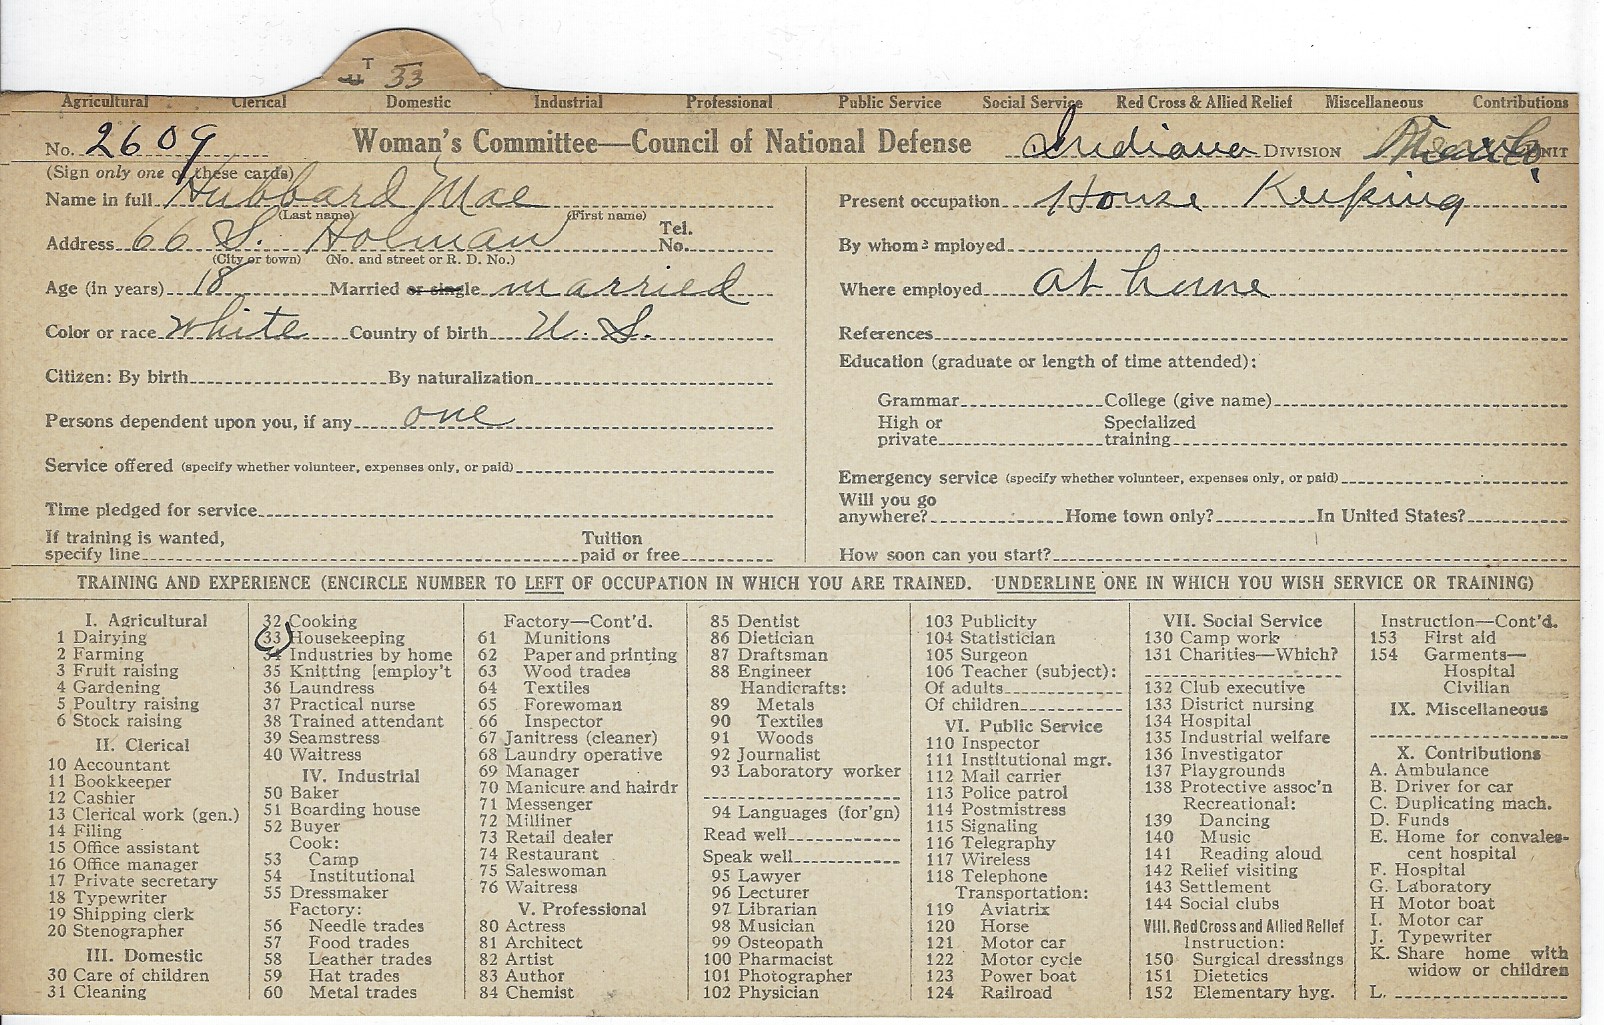 T
33
Agricultural Clerical Domestic Industrial Professional Public Service Social Service Red Cross & Allied Relief Miscellaneous Contributions
No. 2609 Woman's Committee—Council of National Defense Indiana DIVISION UNIT
(Sign only one of these cards)
Name in full Hubbard Mae
(Last name) (First name)
Address 66 S. Holman Tel. No.
(City or town) (No. and street or R. D. No.)
Age (in years) 18 Married or single married
Color or race White Country of birth U. S.
Citizen: By birth By naturalization
Persons dependent upon you, if any one
Service offered (specify whether volunteer, expenses only, or paid)
Time pledged for service
If training is wanted, specify line Tuition paid or free
Present occupation House Keeping
By whom employed
Where employed at home
References
Education (graduate or length of time attended):
Grammar College (give name)
High or private Specialized training
Emergency service (specify whether volunteer, expenses only, or paid)
Will you go anywhere? Home town only? In United States?
How soon can you start?
TRAINING AND EXPERIENCE (ENCIRCLE NUMBER TO LEFT OF OCCUPATION IN WHICH YOU ARE TRAINED. UNDERLINE ONE IN WHICH YOU WISH SERVICE OR TRAINING)
I. Agricultural
1 Dairying
2 Farming
3 Fruit raising
4 Gardening
5 Poultry raising
6 Stock raising
II. Clerical
10 Accountant
11 Bookkeeper
12 Cashier
13 Clerical work (gen.)
14 Filing
15 Office assistant
16 Office manager
17 Private secretary
18 Typewriter
19 Shipping clerk
20 Stenographer
III. Domestic
30 Care of children
31 Cleaning
32 Cooking
33 Housekeeping
34 Industries by home
35 Knitting [employ't
36 Laundress
37 Practical nurse
38 Trained attendant
39 Seamstress
40 Waitress
IV. Industrial
50 Baker
51 Boarding house
52 Buyer
Cook:
53 Camp
54 Institutional
55 Dressmaker
Factory:
56 Needle trades
57 Food trades
58 Leather trades
59 Hat trades
60 Metal trades
Factory—Cont'd.
61 Munitions
62 Paper and printing
63 Wood trades
64 Textiles
65 Forewoman
66 Inspector
67 Janitress (cleaner)
68 Laundry operative
69 Manager
70 Manicure and hairdr
71 Messenger
72 Milliner
73 Retail dealer
74 Restaurant
75 Saleswoman
76 Waitress
V. Professional
80 Actress
81 Architect
82 Artist
83 Author
84 Chemist
85 Dentist
86 Dietician
87 Draftsman
88 Engineer
Handicrafts:
89 Metals
90 Textiles
91 Woods
92 Journalist
93 Laboratory worker
94 Languages (for'gn)
Read well
Speak well
95 Lawyer
96 Lecturer
97 Librarian
98 Musician
99 Osteopath
100 Pharmacist
101 Photographer
102 Physician
103 Publicity
104 Statistician
105 Surgeon
106 Teacher (subject):
Of adults
Of children
VI. Public Service
110 Inspector
111 Institutional mgr.
112 Mail carrier
113 Police patrol
114 Postmistress
115 Signaling
116 Telegraphy
117 Wireless
118 Telephone
Transportation:
119 Aviatrix
120 Horse
121 Motor car
122 Motor cycle
123 Power boat
124 Railroad
VII. Social Service
130 Camp work
131 Charities—Which?
132 Club executive
133 District nursing
134 Hospital
135 Industrial welfare
136 Investigator
137 Playgrounds
138 Protective assoc'n
Recreational:
139 Dancing
140 Music
141 Reading aloud
142 Relief visiting
143 Settlement
144 Social clubs
VIII. Red Cross and Allied Relief
Instruction:
150 Surgical dressings
151 Dietetics
152 Elementary hyg.
Instruction—Cont'd.
153 First aid
154 Garments—
Hospital
Civilian
IX. Miscellaneous
X. Contributions
A. Ambulance
B. Driver for car
C. Duplicating mach.
D. Funds
E. Home for convales-
cent hospital
F. Hospital
G. Laboratory
H Motor boat
I. Motor car
J. Typewriter
K. Share home with
widow or children
L.